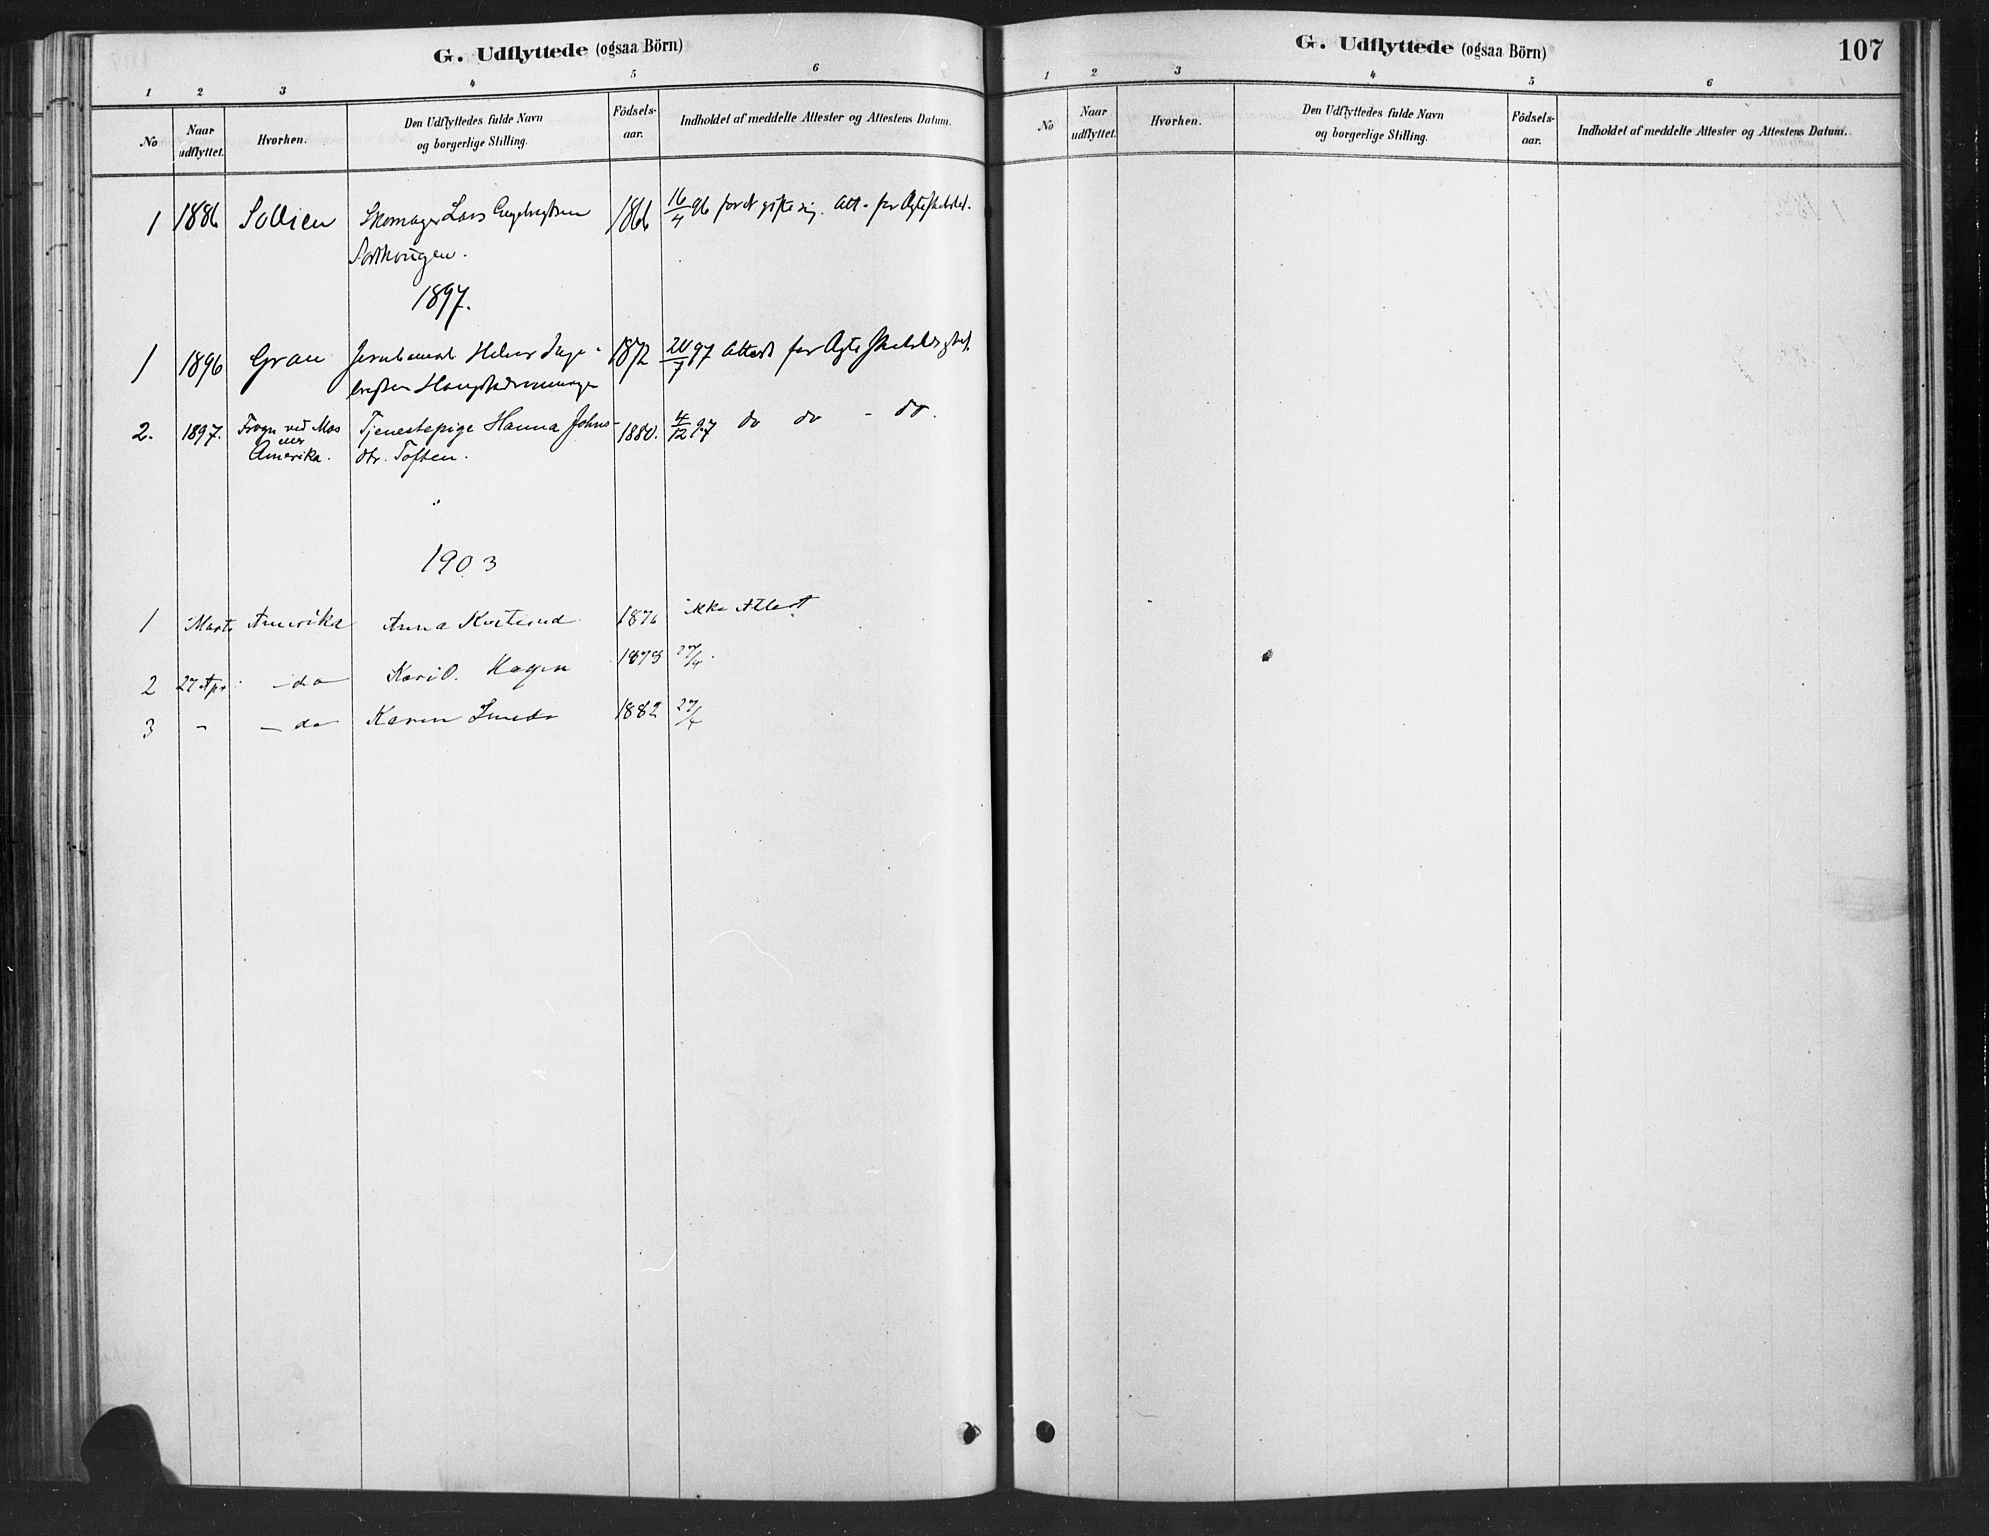 G. Udflyttede (ogsaa Börn)
1 2 3 4 5 6
No
Naar udflyttet.
Hvorhen.
Den Udflyttedes fulde Navn
og borgerlige Stilling.
Födsels-
aar.
Indholdet af meddelte Attester og Attestens Datum.
1 1886 Sollien Skomager Lars Engebregtsen 1866 16/4 96 for at gifte sig. Att. for
1897.
1 1896 Gran Helmer Inge- 1872 20/7 97 Attest for
2. 1897. Frogn ved Mos Tjenestepige Hanna Johns- 1880. 4/12 97 do do - do.
Amerika. dtr. Toften.
1903
1 Marts Amerika Anna 1876 ikke Attest
2 27 Apr. - do Kari O. Hagen 1873 27/4.
3 - - do Karen 1882 27/4
G. Udflyttede (ogsaa Börn)
107
1 2 3 4 5 6
No
Naar
udflyttet.
Hvorhen.
Den Udflyttedes fulde Navn
og borgerlige Stilling.
Födsels-
aar.
Indholdet af meddelte Attester og Attestens Datum.